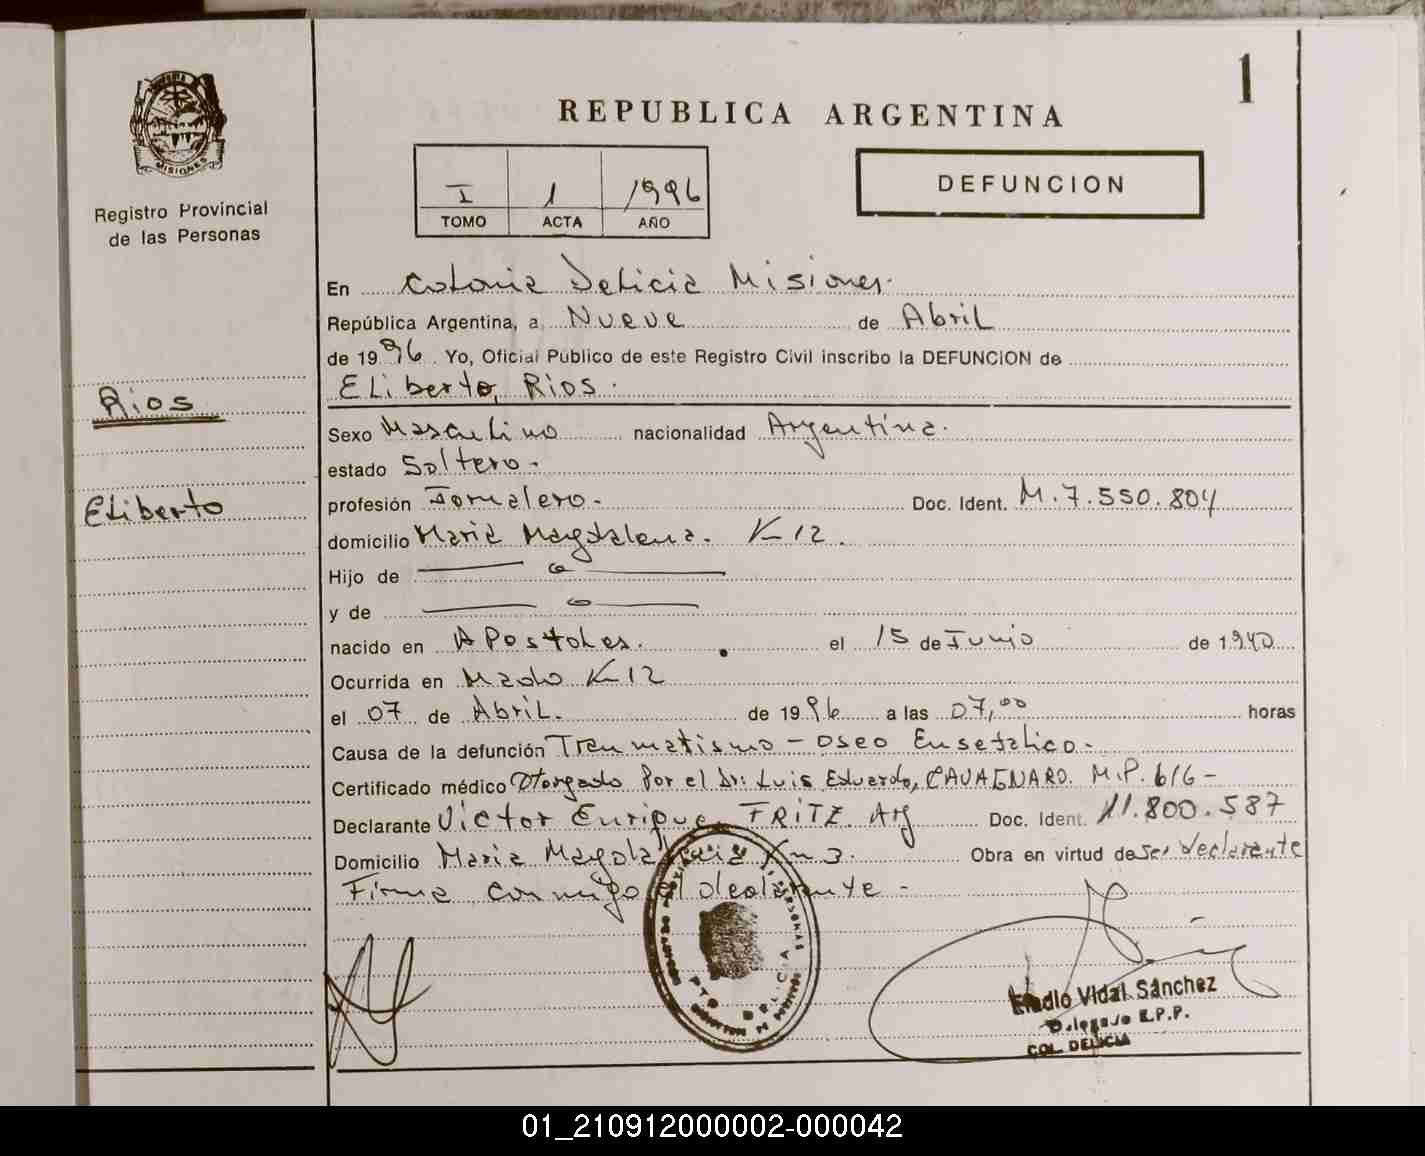 1
REPUBLICA ARGENTINA
MISIONES
Registro Provincial
de las Personas
I 1 1996
TOMO ACTA AÑO
DEFUNCION
En Colonia Delicia Misiones.
República Argentina, a Nueve de Abril
de 1996. Yo, Oficial Público de este Registro Civil inscribo la DEFUNCION de
Eliberto, Rios.
Rios
Eliberto
Sexo Masculino nacionalidad Argentina.
estado Soltero.-
profesión Jornalero.- Doc. Ident. M.7.550.804
domicilio Maria Magdalena. K 12.
Hijo de
y de
nacido en Apostoles. el 15 de Junio de 1940
Ocurrida en Mado K 12
el 07 de Abril. de 1996 a las 07,00 horas
Causa de la defunción Traumatismo - oseo Ensefalico.-
Certificado médico Otorgado Por el Dr: Luis Eduardo, CAVAGNARO. M.P. 616-
Declarante Victor Enrique, FRITZ. Arg Doc. Ident. 11.800.587
Domicilio Maria Magdalena Km 3. Obra en virtud de Ser declarante
Firma conmigo el declarante -
PTO DELICIA
Eladio Vidal Sánchez
Delegado R.P.P.
COL. DELICIA
01_210912000002-000042